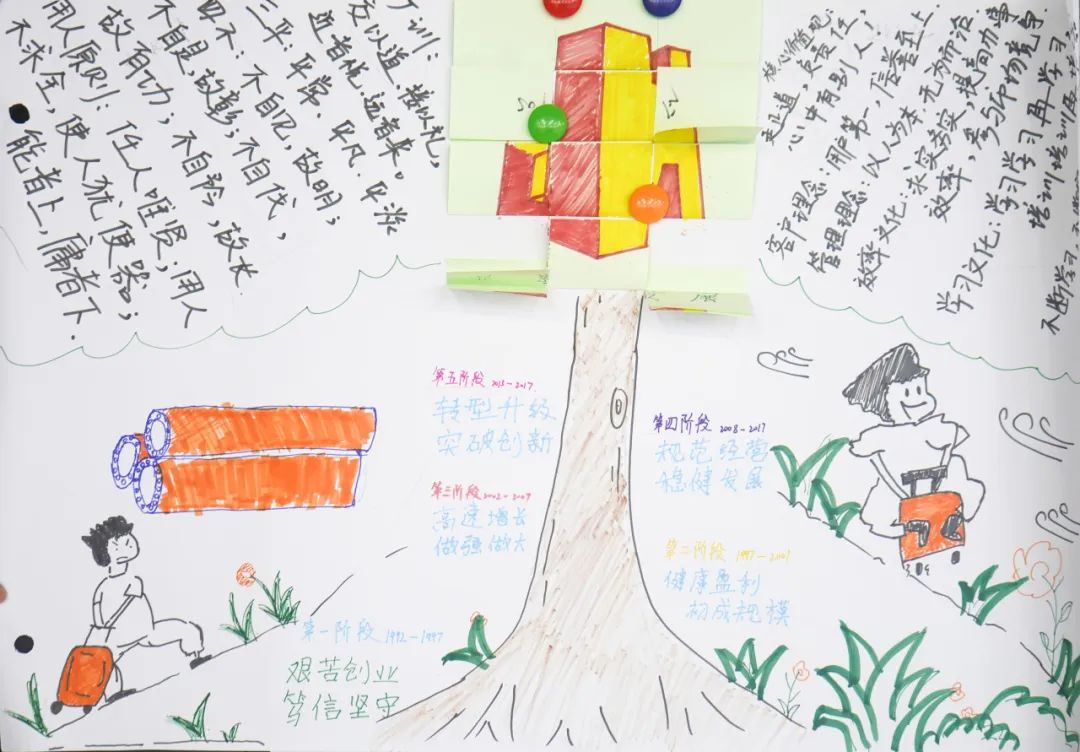 厂训：
交以道，接以礼，
近者悦，远者来。
三平：平常、平凡、平淡
四不：不自见，故明；
不自是，故彰；不自伐，
故有功；不自矜，故长.
用人原则：任人唯贤；用人
不求全，使人就使器；
能者上，庸者下.
核心价值观：
走正道，负责任，
心中有别人
客户理念：用户第一，信誉至上
管理理念：以人为本，无为而治
效率文化：求实务实，提高办事
效率，参与市场竞争.
学习文化：学习学习再学习，
培训培训再培训
不断学习，不
第五阶段 2013—2017.
转型升级
突破创新
第四阶段 2008-2017
规范经营
稳健发展
第三阶段 2002-2007
高速增长
做强做大
第二阶段 1997—2001
健康盈利
初成规模
第一阶段 1992—1997
艰苦创业
笃信坚守